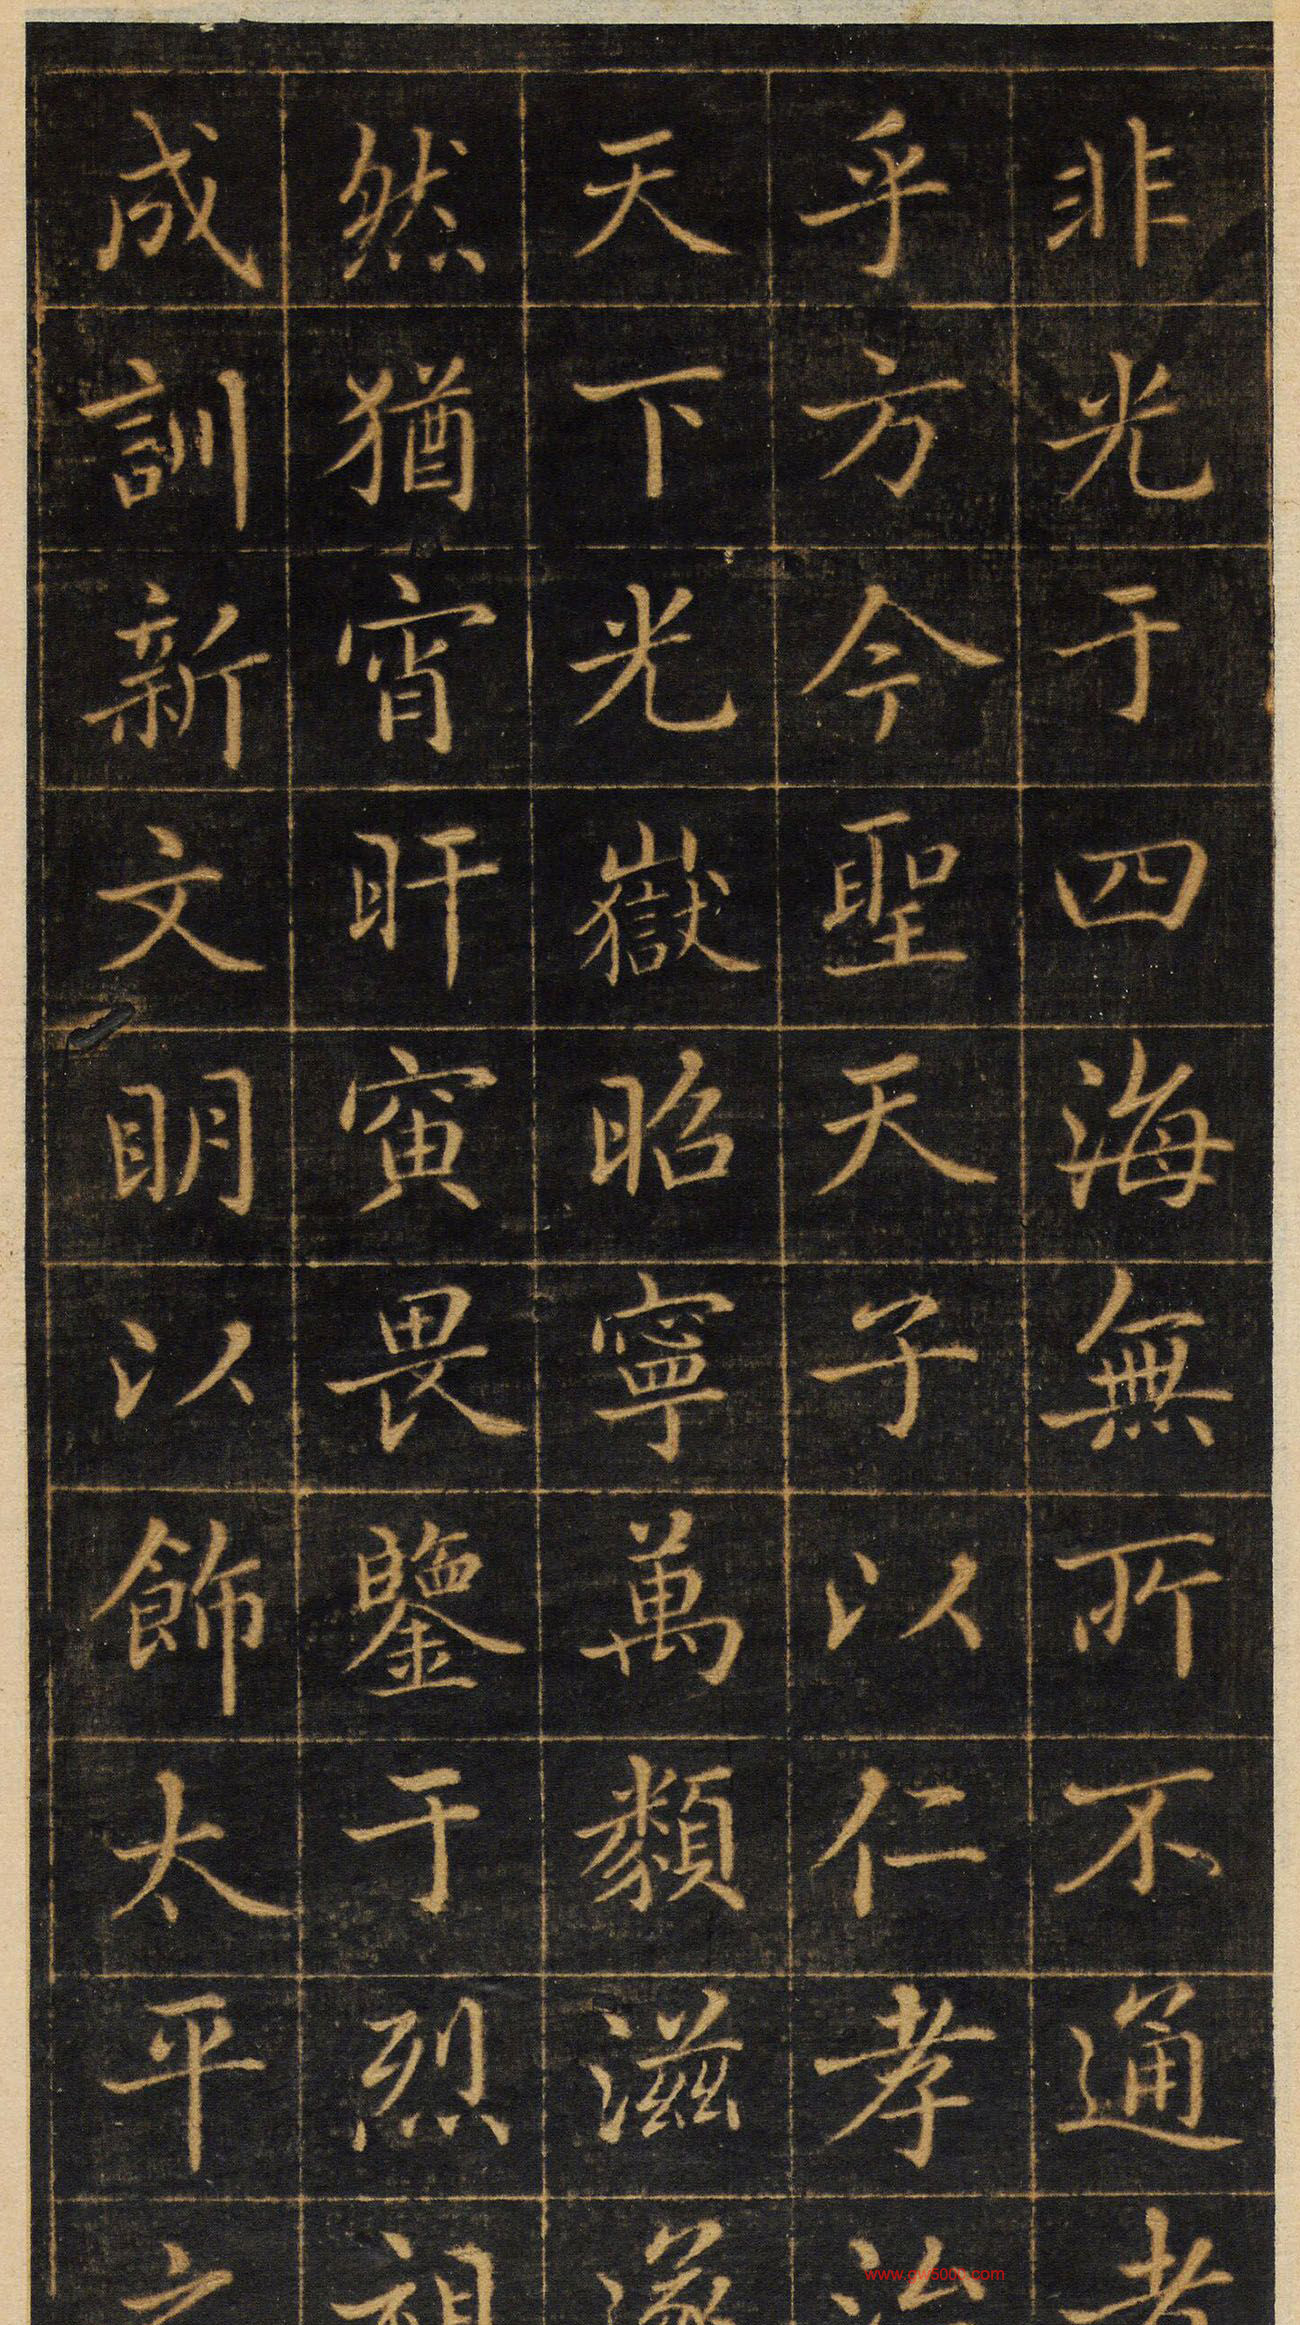 非光于四海無所不通者
乎方今聖天子以仁孝治
天下光嶽昭寧萬類滋
然猶宵旰寅畏鑒于烈祖
成訓新文明以飾太平
www.gw5000.com